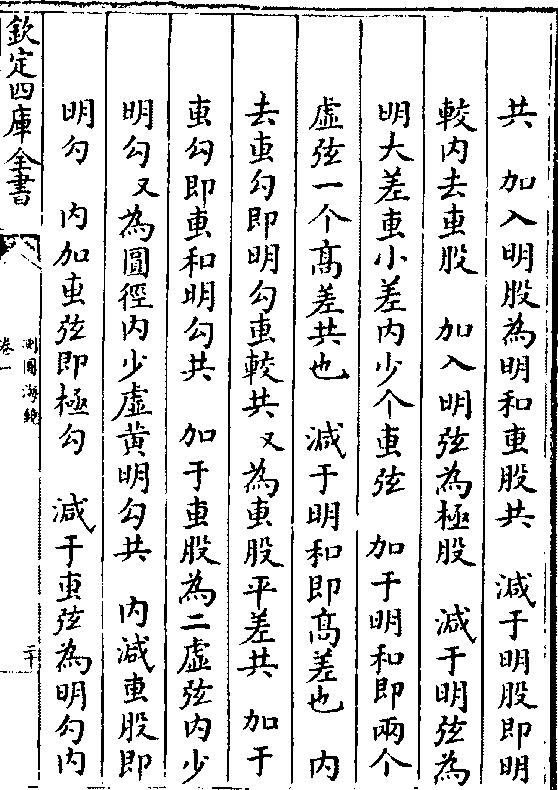 共　加入明股為明和叀股共　減于明股即明
較内去叀股　加入明弦為極股　減于明弦為
明大差叀小差内少个叀弦　加于明和即兩个
虚弦一个髙差共也　減于明和即髙差也　内
去叀勾即明勾叀較共又為叀股平差共　加于
叀勾即叀和明勾共　加于叀股為二虚弦内少
明勾又為圓徑内少虚黄明勾共　内減叀股即
明勾　内加叀弦即極勾　減于叀弦為明勾内
欽定四庫全書
測圓海鏡
卷一
二十